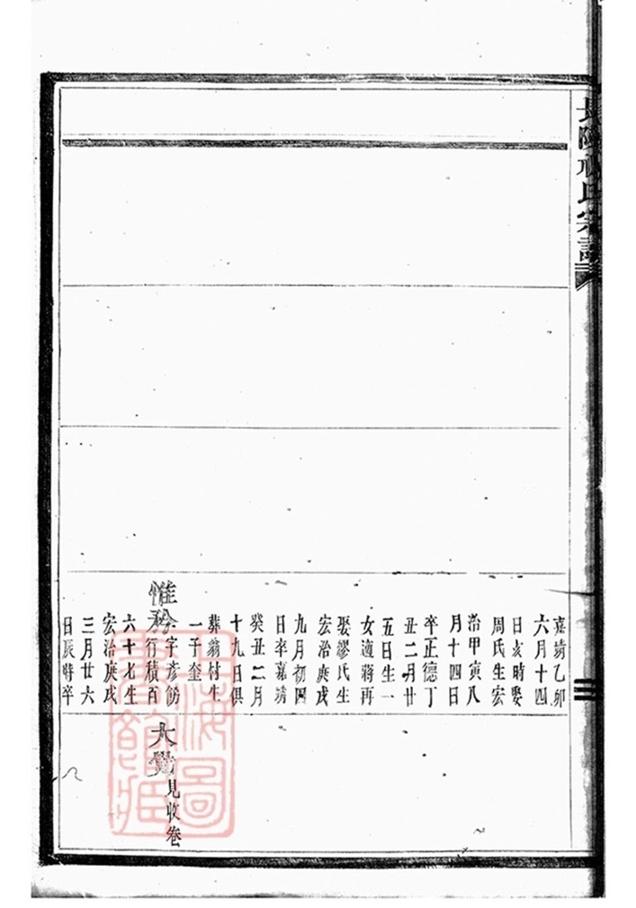 氏宗譜
嘉靖乙卯
六月十四
日亥時娶
周氏生宏
治甲寅八
月十四日
卒正德丁
丑二月廿
五日生一
女適蔣再
娶繆氏生
宏治庚戌
九月初四
日卒嘉靖
癸丑二月
十九日俱
葬翁付生
一子奎
惟 字彥
行積百
六十七生
宏治庚戌
三月廿六
日辰時卒
大 見收卷
上海圖
書館藏